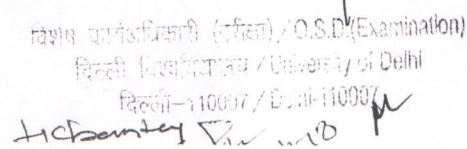 विशेष कार्याधिकारी (परीक्षा)/O.S.D.(Examination)
दिल्ली विश्वविद्यालय / University of Delhi
दिल्ली-110007 / Delhi-110007